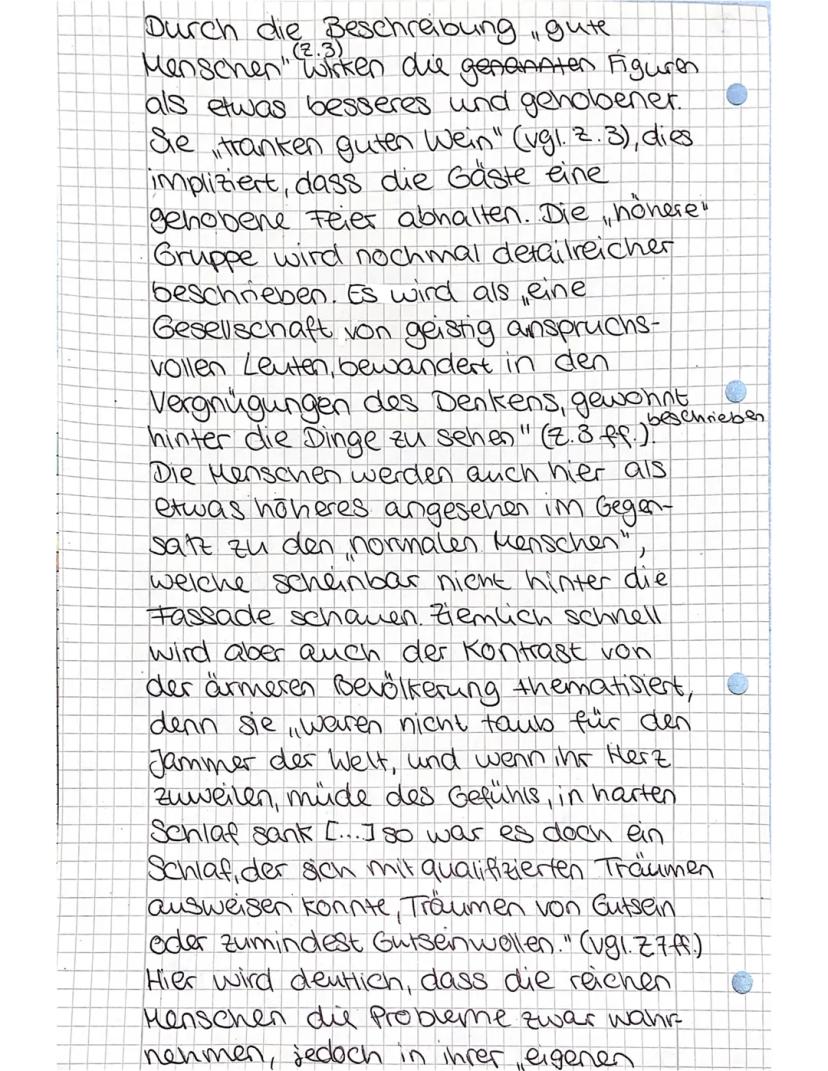 Durch die Beschreibung „gute
Menschen" (Z.3) wirken die genannten Figuren
als etwas besseres und gehobener.
Sie „tranken guten Wein" (vgl. Z.3), dies
impliziert, dass die Gäste eine
gehobene Feier abhalten. Die „höhere"
Gruppe wird nochmal detailreicher
beschrieben. Es wird als „eine
Gesellschaft von geistig anspruchs-
vollen Leuten, bewandert in den
Vergnügungen des Denkens, gewohnt
hinter die Dinge zu sehen" (Z.3 ff.) beschrieben.
Die Menschen werden auch hier als
etwas höheres angesehen im Gegen-
satz zu den „normalen Menschen",
welche scheinbar nicht hinter die
Fassade schauen. Ziemlich schnell
wird aber auch der Kontrast von
der ärmeren Bevölkerung thematisiert,
denn sie „waren nicht taub für den
Jammer der Welt, und wenn ihr Herz
zuweilen, müde des Gefühls, in harten
Schlaf sank [...] so war es doch ein
Schlaf, der sich mit qualifizierten Träumen
ausweisen konnte, Träumen von Gutsein
oder zumindest Gutseinwollen." (vgl. Z7ff.)
Hier wird deutlich, dass die reichen
Menschen die Probleme zwar wahr-
nehmen, jedoch in ihrer „eigenen